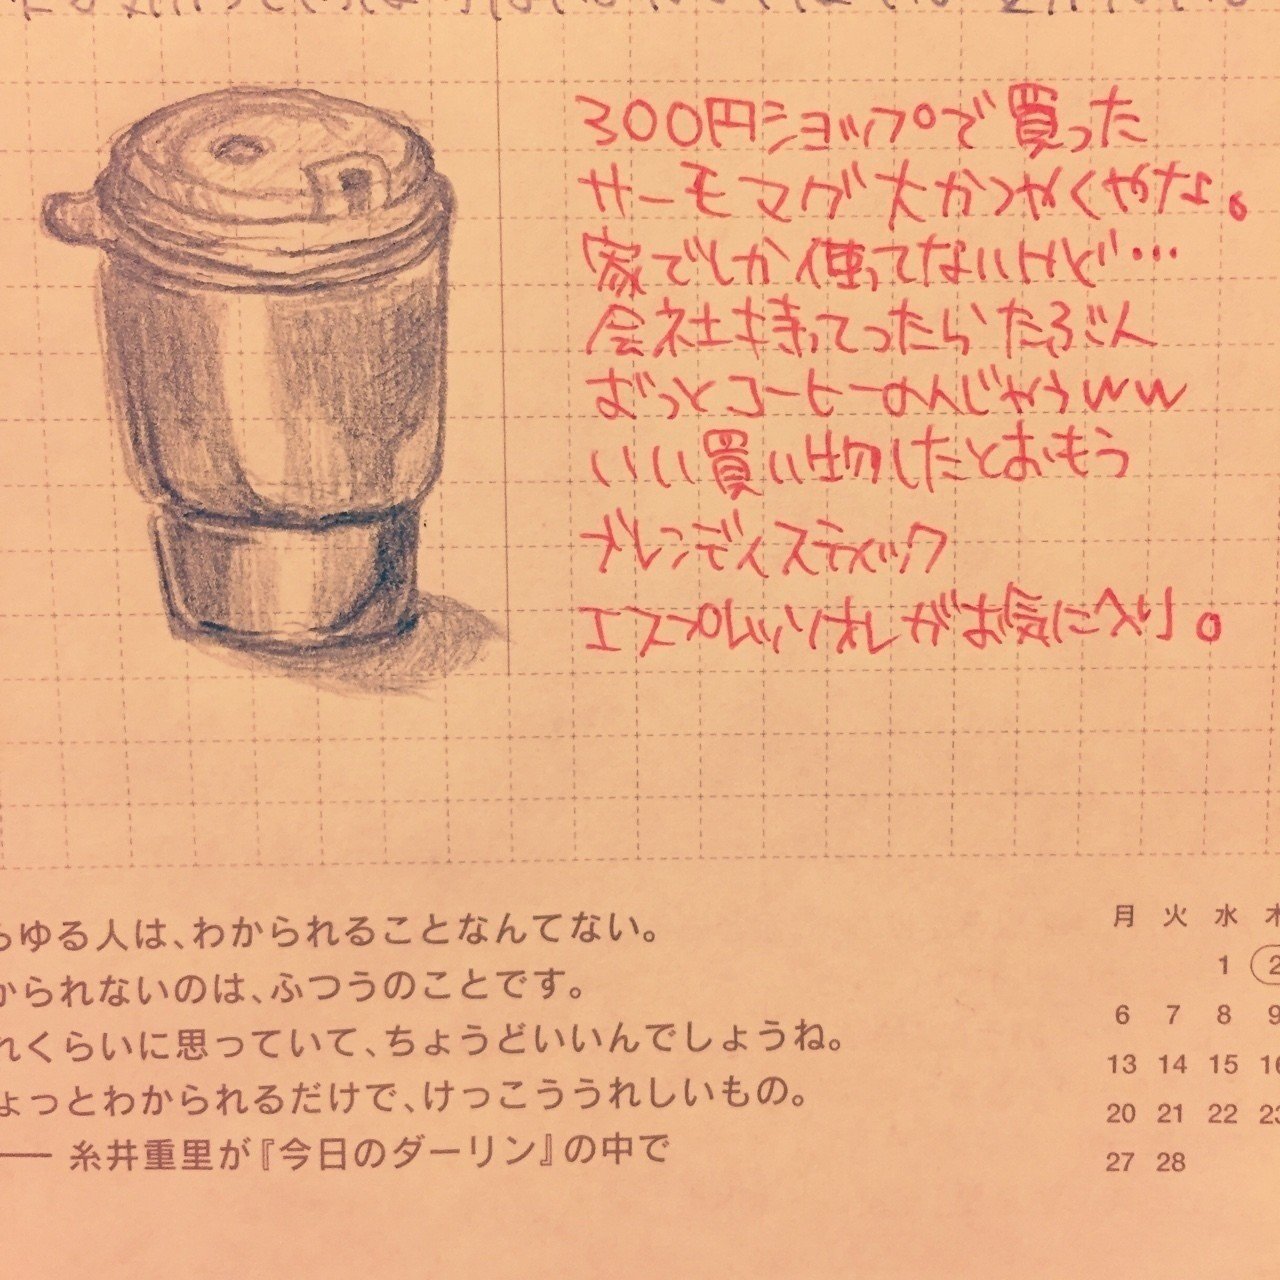 300円ショップで買った
サーモマグ大かつやくやな。
家でしか使ってないけど…
会社持ってったらたぶん
ずっとコーヒーのんじゃうww
いい買い物したとおもう
ブレンディスティック
エスプレッソオレがお気に入り。
らゆる人は、わかられることなんてない。
かられないのは、ふつうのことです。
れくらいに思っていて、ちょうどいいんでしょうね。
ょっとわかられるだけで、けっこううれしいもの。
—— 糸井重里が『今日のダーリン』の中で
月 火 水 木
1 2
6 7 8 9
13 14 15 16
20 21 22 23
27 28